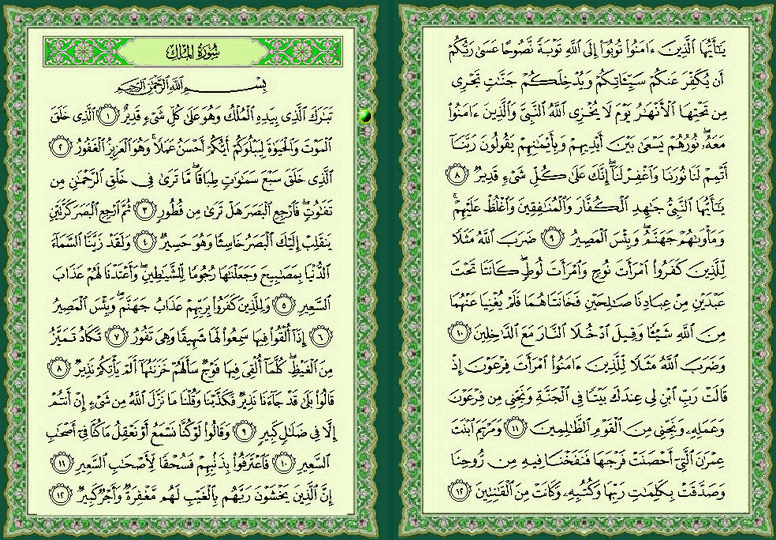 يَٰٓأَيُّهَا ٱلَّذِينَ ءَامَنُوا۟ تُوبُوٓا۟ إِلَى ٱللَّهِ تَوْبَةً نَّصُوحًا عَسَىٰ رَبُّكُمْ
أَن يُكَفِّرَ عَنكُمْ سَيِّـَٔاتِكُمْ وَيُدْخِلَكُمْ جَنَّٰتٍ تَجْرِى
مِن تَحْتِهَا ٱلْأَنْهَٰرُ يَوْمَ لَا يُخْزِى ٱللَّهُ ٱلنَّبِىَّ وَٱلَّذِينَ ءَامَنُوا۟
مَعَهُۥ ۖ نُورُهُمْ يَسْعَىٰ بَيْنَ أَيْدِيهِمْ وَبِأَيْمَٰنِهِمْ يَقُولُونَ رَبَّنَآ
أَتْمِمْ لَنَا نُورَنَا وَٱغْفِرْ لَنَآ ۖ إِنَّكَ عَلَىٰ كُلِّ شَىْءٍ قَدِيرٌ ٨
يَٰٓأَيُّهَا ٱلنَّبِىُّ جَٰهِدِ ٱلْكُفَّارَ وَٱلْمُنَٰفِقِينَ وَٱغْلُظْ عَلَيْهِمْ ۚ
وَمَأْوَىٰهُمْ جَهَنَّمُ ۖ وَبِئْسَ ٱلْمَصِيرُ ٩ ضَرَبَ ٱللَّهُ مَثَلًا
لِّلَّذِينَ كَفَرُوا۟ ٱمْرَأَتَ نُوحٍ وَٱمْرَأَتَ لُوطٍ ۖ كَانَتَا تَحْتَ
عَبْدَيْنِ مِنْ عِبَادِنَا صَٰلِحَيْنِ فَخَانَتَاهُمَا فَلَمْ يُغْنِيَا عَنْهُمَا
مِنَ ٱللَّهِ شَيْـًٔا وَقِيلَ ٱدْخُلَا ٱلنَّارَ مَعَ ٱلدَّٰخِلِينَ ١٠
وَضَرَبَ ٱللَّهُ مَثَلًا لِّلَّذِينَ ءَامَنُوا۟ ٱمْرَأَتَ فِرْعَوْنَ إِذْ
قَالَتْ رَبِّ ٱبْنِ لِى عِندَكَ بَيْتًا فِى ٱلْجَنَّةِ وَنَجِّنِى مِن فِرْعَوْنَ
وَعَمَلِهِۦ وَنَجِّنِى مِنَ ٱلْقَوْمِ ٱلظَّٰلِمِينَ ١١ وَمَرْيَمَ ٱبْنَتَ
عِمْرَٰنَ ٱلَّتِىٓ أَحْصَنَتْ فَرْجَهَا فَنَفَخْنَا فِيهِ مِن رُّوحِنَا
وَصَدَّقَتْ بِكَلِمَٰتِ رَبِّهَا وَكُتُبِهِۦ وَكَانَتْ مِنَ ٱلْقَٰنِتِينَ ١٢
سُورَةُ المُلْكِ
بِسْمِ ٱللَّهِ ٱلرَّحْمَٰنِ ٱلرَّحِيمِ
تَبَٰرَكَ ٱلَّذِى بِيَدِهِ ٱلْمُلْكُ وَهُوَ عَلَىٰ كُلِّ شَىْءٍ قَدِيرٌ ١ ٱلَّذِى خَلَقَ
ٱلْمَوْتَ وَٱلْحَيَوٰةَ لِيَبْلُوَكُمْ أَيُّكُمْ أَحْسَنُ عَمَلًا ۚ وَهُوَ ٱلْعَزِيزُ ٱلْغَفُورُ ٢
ٱلَّذِى خَلَقَ سَبْعَ سَمَٰوَٰتٍ طِبَاقًا ۖ مَّا تَرَىٰ فِى خَلْقِ ٱلرَّحْمَٰنِ مِن
تَفَٰوُتٍ ۖ فَٱرْجِعِ ٱلْبَصَرَ هَلْ تَرَىٰ مِن فُطُورٍ ٣ ثُمَّ ٱرْجِعِ ٱلْبَصَرَ كَرَّتَيْنِ
يَنقَلِبْ إِلَيْكَ ٱلْبَصَرُ خَاسِئًا وَهُوَ حَسِيرٌ ٤ وَلَقَدْ زَيَّنَّا ٱلسَّمَآءَ
ٱلدُّنْيَا بِمَصَٰبِيحَ وَجَعَلْنَٰهَا رُجُومًا لِّلشَّيَٰطِينِ ۖ وَأَعْتَدْنَا لَهُمْ عَذَابَ
ٱلسَّعِيرِ ٥ وَلِلَّذِينَ كَفَرُوا۟ بِرَبِّهِمْ عَذَابُ جَهَنَّمَ ۖ وَبِئْسَ ٱلْمَصِيرُ
٦ إِذَآ أُلْقُوا۟ فِيهَا سَمِعُوا۟ لَهَا شَهِيقًا وَهِىَ تَفُورُ ٧ تَكَادُ تَمَيَّزُ
مِنَ ٱلْغَيْظِ ۖ كُلَّمَآ أُلْقِىَ فِيهَا فَوْجٌ سَأَلَهُمْ خَزَنَتُهَآ أَلَمْ يَأْتِكُمْ نَذِيرٌ ٨
قَالُوا۟ بَلَىٰ قَدْ جَآءَنَا نَذِيرٌ فَكَذَّبْنَا وَقُلْنَا مَا نَزَّلَ ٱللَّهُ مِن شَىْءٍ إِنْ أَنتُمْ
إِلَّا فِى ضَلَٰلٍ كَبِيرٍ ٩ وَقَالُوا۟ لَوْ كُنَّا نَسْمَعُ أَوْ نَعْقِلُ مَا كُنَّا فِىٓ أَصْحَٰبِ
ٱلسَّعِيرِ ١٠ فَٱعْتَرَفُوا۟ بِذَنۢبِهِمْ فَسُحْقًا لِّأَصْحَٰبِ ٱلسَّعِيرِ ١١
إِنَّ ٱلَّذِينَ يَخْشَوْنَ رَبَّهُم بِٱلْغَيْبِ لَهُم مَّغْفِرَةٌ وَأَجْرٌ كَبِيرٌ ١٢